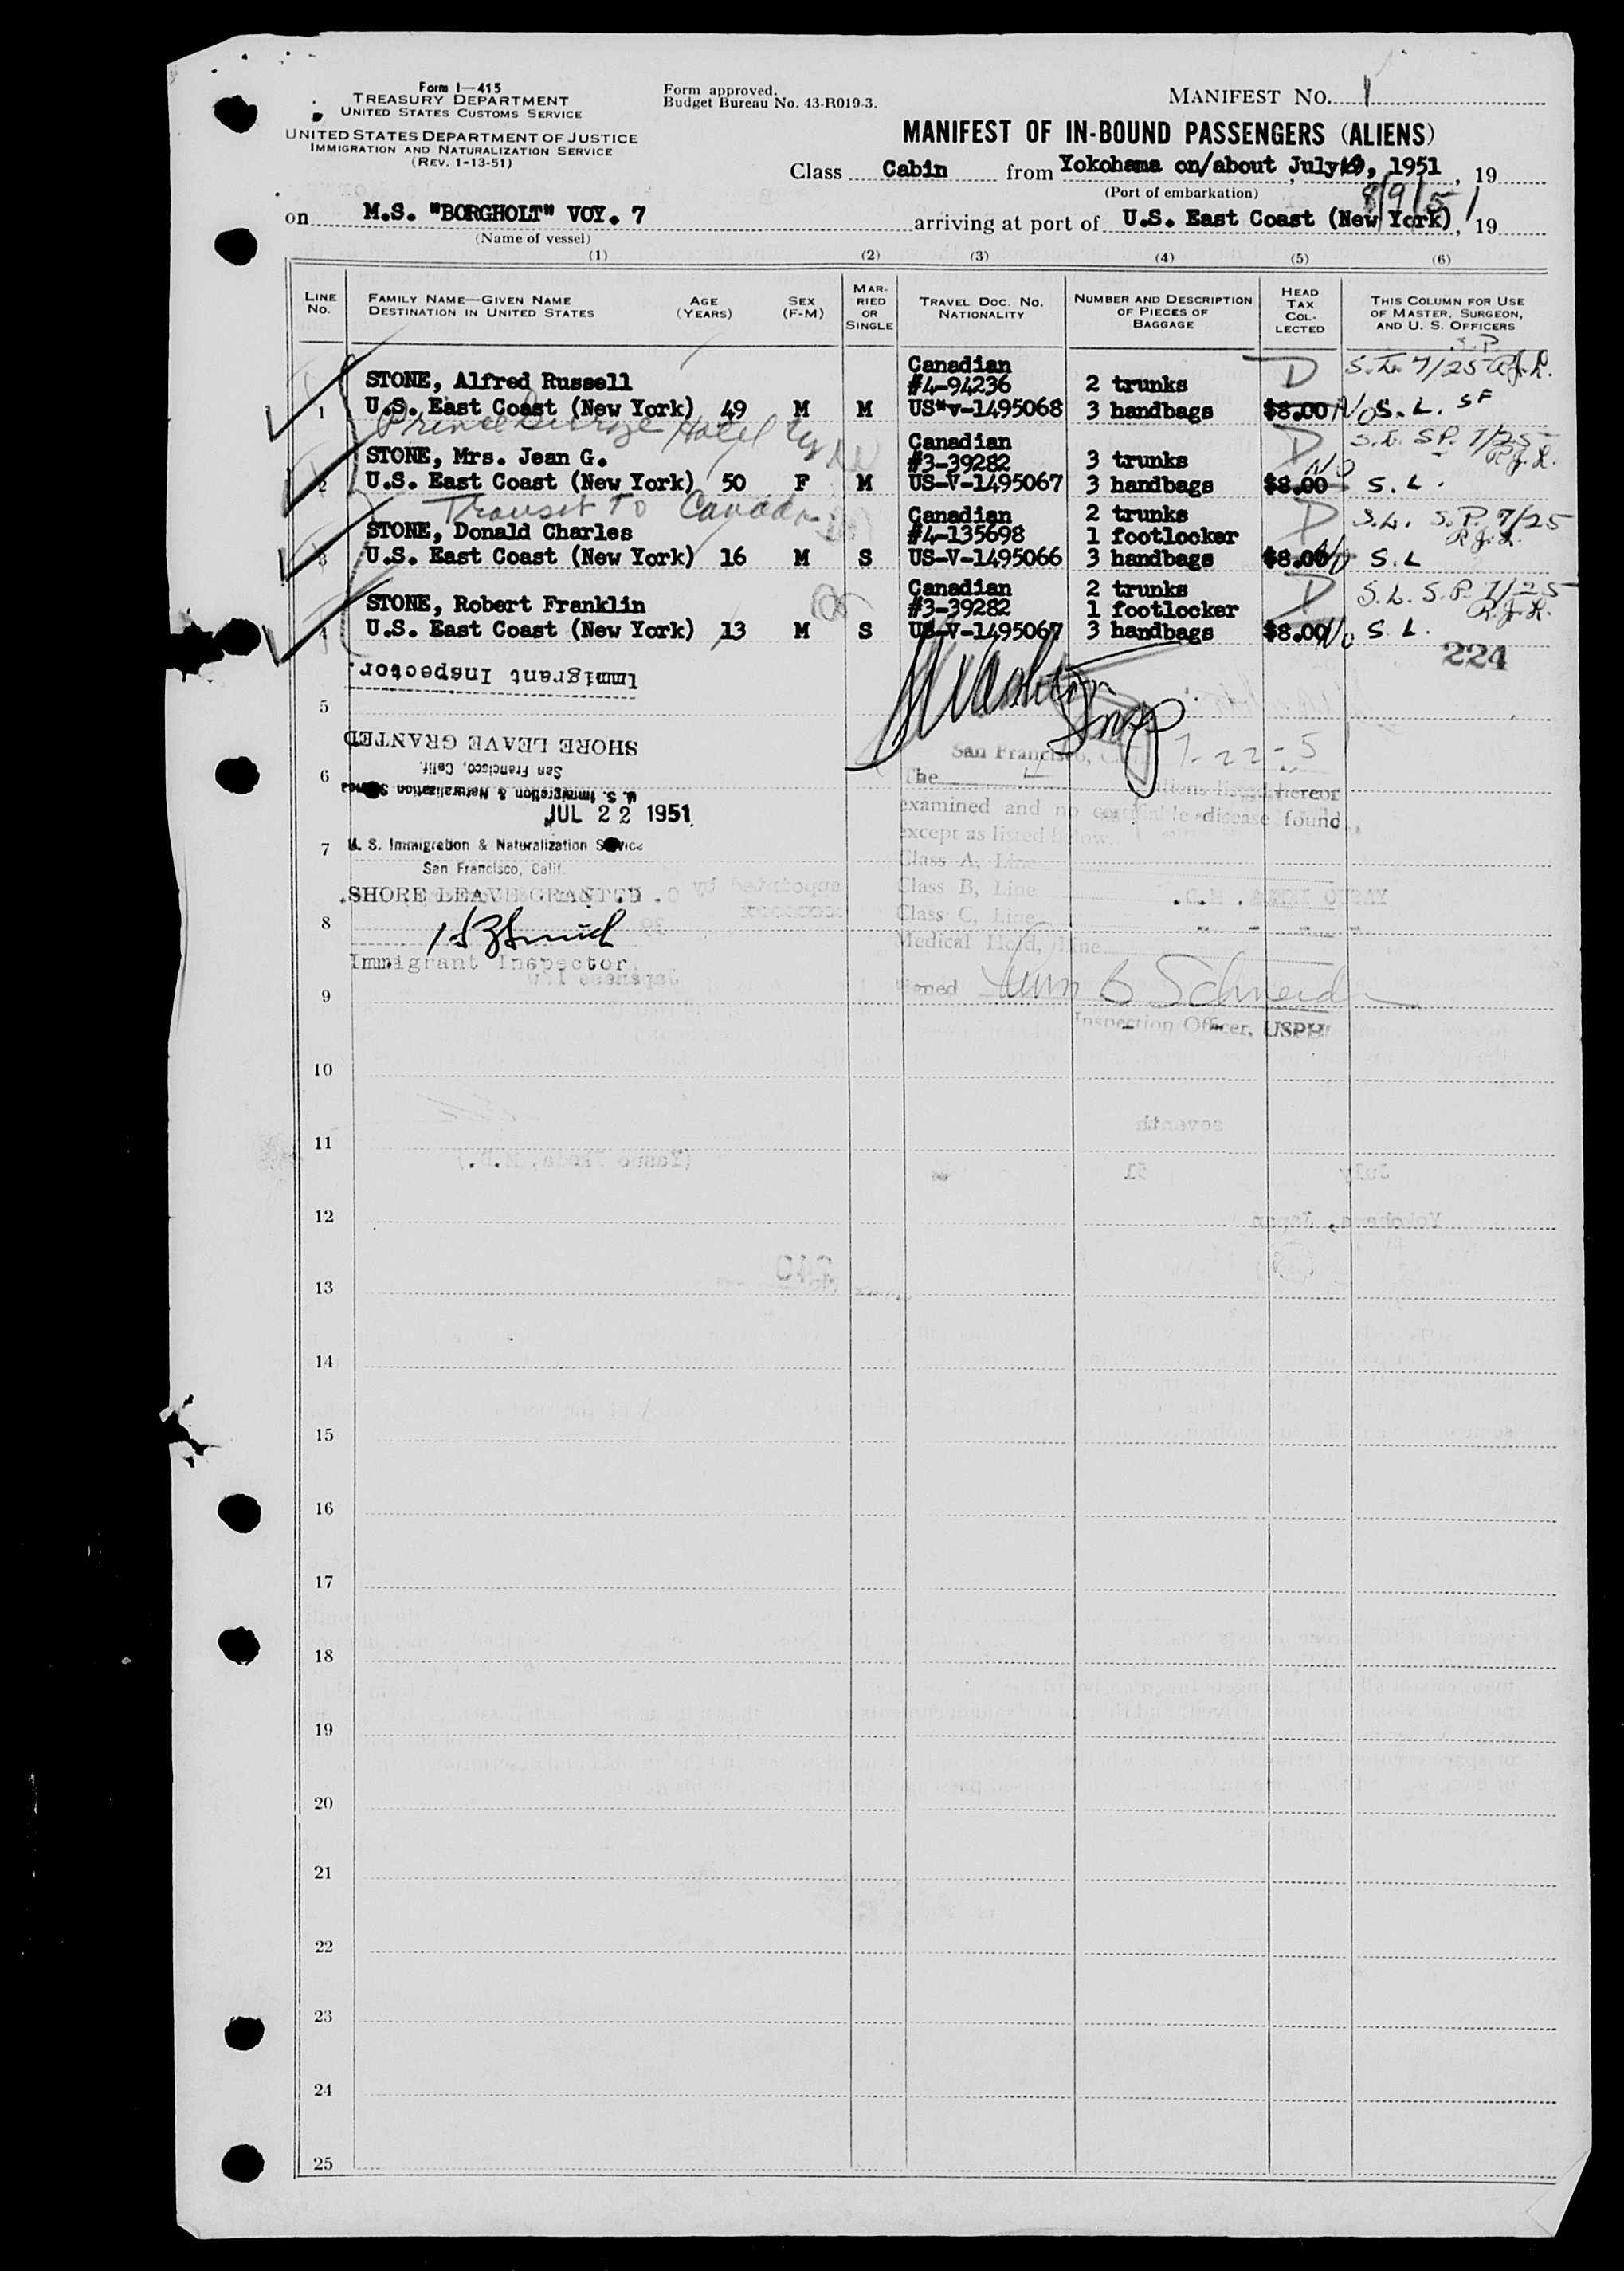 Form I—415
TREASURY DEPARTMENT
UNITED STATES CUSTOMS SERVICE
UNITED STATES DEPARTMENT OF JUSTICE
IMMIGRATION AND NATURALIZATION SERVICE
(REV. 1-13-51)
Form approved.
Budget Bureau No. 43-R019-3.
MANIFEST NO. 1
MANIFEST OF IN-BOUND PASSENGERS (ALIENS)
Class Cabin from Yokohama on/about July , 1951, 19
(Port of embarkation)
8/9/51
on M.S. "BORGHOLT" VOY. 7 arriving at port of U.S. East Coast (New York), 19
(Name of vessel)
(1) (2) (3) (4) (5) (6)
LINE No. FAMILY NAME—GIVEN NAME DESTINATION IN UNITED STATES AGE (YEARS) SEX (F-M) MARRIED OR SINGLE TRAVEL DOC. NO. NATIONALITY NUMBER AND DESCRIPTION OF PIECES OF BAGGAGE HEAD TAX COLLECTED THIS COLUMN FOR USE OF MASTER, SURGEON, AND U. S. OFFICERS
S.P.
Canadian
STONE, Alfred Russell #4-94236 2 trunks D S.L. 7/25 R.J.L.
1 U.S. East Coast (New York) 49 M M US*v-1495068 3 handbags $8.00 No S.L. SF
Prince George Hotel
Canadian D S.L. SP. 7/25
STONE, Mrs. Jean G. #3-39282 3 trunks R.J.L.
2 U.S. East Coast (New York) 50 F M US-V-1495067 3 handbags $8.00 No S.L.
Transit To Canada
Canadian 2 trunks D S.L. S.P. 7/25
STONE, Donald Charles #4-135698 1 footlocker R.J.L.
3 U.S. East Coast (New York) 16 M S US-V-1495066 3 handbags $8.00 No S.L
Canadian 2 trunks D S.L. S.P. 7/25
STONE, Robert Franklin #3-39282 1 footlocker R.J.L.
4 U.S. East Coast (New York) 13 M S US-V-1495067 3 handbags $8.00 No S.L.
224
Immigrant Inspector.
5
SHORE LEAVE GRANTED
San Francisco, Calif.
6
U. S. Immigration & Naturalization Service
JUL 22 1951
7 U. S. Immigration & Naturalization Service
San Francisco, Calif.
SHORE LEAVE GRANTED.
8
Immigrant Inspector.
San Francisco, Cal. 7-22-5
The 4 aliens listed hereon
examined and no certifiable disease found
except as listed below.
Class A, Line
Class B, Line
Class C, Line
Medical Hold, Line
Signed B Schneider
Inspection Officer, USPH
YASUO IKEDA, M.D.
appointed by
39
Japanese law
9
10
seventh
11
(Yasuo Ikeda, M.D.) 51 July
12
Yokohama, Japan
240
13
14
15
16
17
18
19
20
21
22
23
24
25